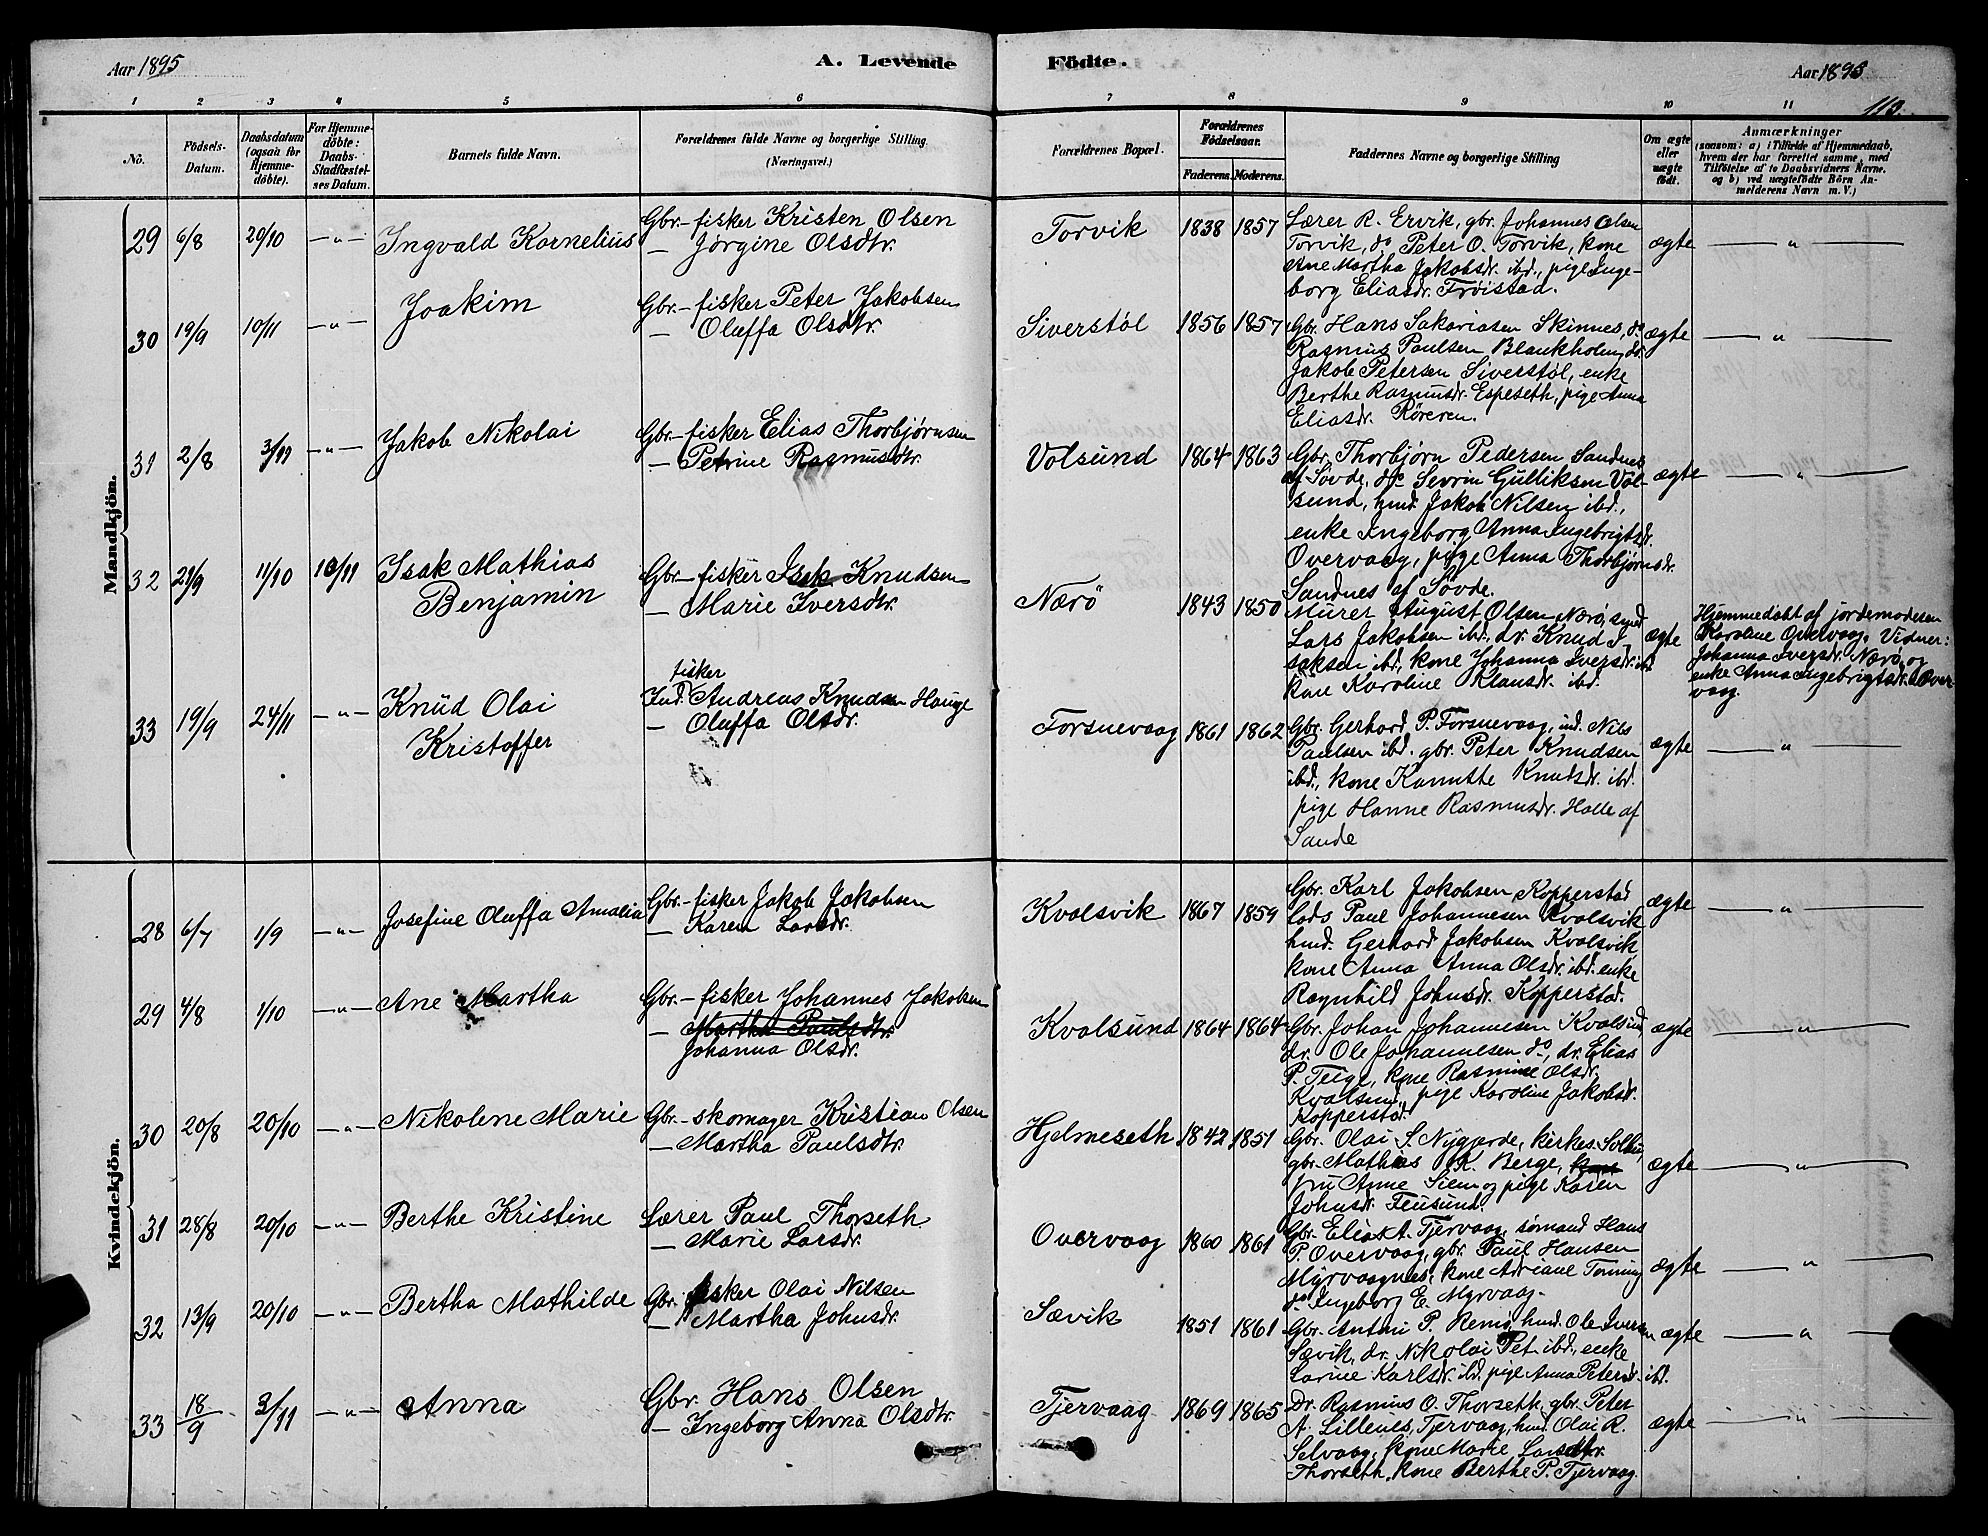 Aar 1895
A. Levende
Födte.
Aar 1895
113.
1 2 3 4 5 6 7 8 9 10 11
No.
Födsels-
Datum.
Daabsdatum
(ogsaa for
Hjemme-
döbte).
For Hjemme-
döbte:
Daabs-
Stadfæstel-
ses Datum.
Barnets fulde Navn.
Forældrenes fulde Navne og borgerlige Stilling
(Næringsvei.)
Forældrenes Bopæl.
Forældrenes
Fødselsaar.
Faderens. Moderens.
Faddernes Navne og borgerlige Stilling
Om ægte
eller
uægte
født.
Anmærkninger
(saasom: a) i Tilfælde af Hjemmedaab,
hvem der har forrettet samme, med
Tilföielse af to Daabsvidners Navne.
og b) ved uægtefødte Börn An-
melderens Navn m. V.)
Mandkjön.
29 6/8 20/10 —„— Ingvald Kornelius
Gbr.- fisker Kristen Olsen
— Jørgine Olsdtr.
Torvik 1838 1857
Lærer R. Ervik, gbr. Johannes Olsen
Torvik, do Peter O. Torvik, kone
Ane Martha Jakobsdr. ibd., pige Inge-
borg Eliasdr. Frøistad.
ægte —„—
30 19/9 10/11 —„— Joakim
Gbr.- fisker Peter Jakobsen
— Oluffa Olsdtr.
Siverstøl 1856 1857
Gbr. Hans Sakariasen Skinnes, do
Rasmus Paulsen Blankholm, dr.
Jakob Petersen Siverstøl, enke
Berthe Rasmusdr. Espeseth, pige Anna
Eliasdr. Røren.
ægte —„—
31 2/8 3/11 —„— Jakob Nikolai
Gbr.- fisker Elias Thorbjørnsen
— Petrine Rasmusdtr.
Volsund 1864 1863
Gbr. Thorbjørn Pedersen Sandnes
af Søvde, do Sevrin Gulliksen Vol-
sund, hmd Jakob Nilsen ibd.,
enke Ingeborg Anna Ingebrigtsdr.
Overvaag, pige Anna Thorbjørnsdr.
Sandnes af Søvde.
ægte —„—
32 21/9 11/10 10/11 Isak Mathias
Benjamin
Gbr.- fisker Isak Knudsen
— Marie Iversdtr.
Nærø 1843 1850
Murer August Olsen Nærø, smed
Lars Jakobsen ibd., dr. Knud I-
saksen ibd., kone Johanna Iversdr. ibd.
kone Karoline Klausdr. ibd.
ægte
Hjemmedøbt af jordemoderen
Karoline Overvaag. Vidner:
Johanna Iversdr. Nærø og
enke Anna Ingebrigtsdr. Over-
vaag.
33 19/9 24/11 —„— Knud Olai
Kristoffer
fisker
Ind. Andreas Knudsen Hauge
— Oluffa Olsdr.
Torsnevaag 1861 1862
Gbr. Gerhard P. Torsnevaag, ind. Nils
Paulsen ibd. gbr. Peter Knudsen
ibd., kone Kanutte Knudsdr. ibd.
pige Hanne Rasmusdr. Halle af
Sande
ægte —„—
Kvindekjön.
28 6/7 1/9 —„— Josefine Oluffa Amalia
Gbr.- fisker Jakob Jakobsen
— Karen Larsdr.
Kvalsvik 1867 1859
Gbr. Karl Jakobsen Kopperstad
Lods Paul Johannesen Kvalsvik
hmd. Gerhard Jakobsen Kvalsvik
kone Anna Anna Olsdr. ibd. enke
Ragnhild Johnsdr. Kopperstad.
ægte —„—
29 4/8 1/10 —„— Ane Martha
Gbr.- fisker Johannes Jakobsen
— Martha Paulsdtr.
Johanna Olsdr.
Kvalsund 1864 1864
Gbr. Johan Johannesen Kvalsund,
dr. Ole Johannesen do, dr. Elias
P. Teige, kone Rasmine Olsdr.
Kvalsund, pige Karoline Jakobsdr.
Kopperstad.
ægte —„—
30 20/8 20/10 —„— Nikoline Marie
Gbr.- skomager Kristian Olsen
— Martha Paulsdtr.
Hjelmeseth 1842 1851
Gbr. Olai S. Nygjerde, kirkes.
gbr. Mathias K. Berge, kone
fru Anne Siem og pige Karen
Johnsdr.
ægte —„—
31 28/8 20/10 —„— Berthe Kristine
Lærer Paul Thorseth
— Marie Larsdr.
Overvaag 1860 1861
Gbr. Elias A. Tjervaag, sømand Hans
P. Overvaag, gbr. Paul Hansen
Myrvaagnes, kone Adriane Tonning
do Ingeborg E. Myrvaag.
ægte —„—
32 13/9 20/10 —„— Bertha Mathilde
Gbr. fisker Olai Nilsen
— Martha Johnsdr.
Sævik 1851 1861
Gbr. Antoni P. Remø, hmd. Ole Iversen
Sævik, dr. Nikolai Pet. ibd., enke
Larine Karlsdr. ibd. pige Anna Petersdr. ibd.
ægte —„—
33 18/9 3/11 —„— Anna
Gbr. Hans Olsen
— Ingeborg Anna Olsdtr.
Tjervaag 1869 1865
Dr. Rasmus O. Thorseth, gbr. Peter
A. Lillenes, Tjervaag, hmd. Olai R.
Selvaag, kone Marie Larsdtr.
Thorseth, kone Berthe P. Tjervaag.
ægte —„—